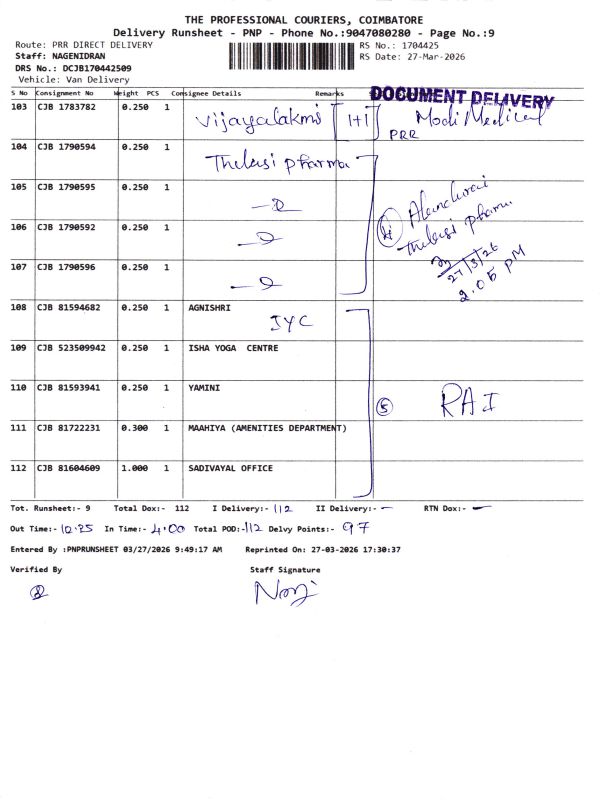 THE PROFESSIONAL COURIERS, COIMBATORE
Delivery Runsheet - PNP - Phone No.:9047080280 - Page No.:9
Route: PRR DIRECT DELIVERY
RS No.: 1704425
Staff: NAGENIDRAN
RS Date: 27-Mar-2026
DRS No.: DCJB170442509
Vehicle: Van Delivery
DOCUMENT DELIVERY
S No Consignment No Weight PCS Consignee Details Remarks
103 CJB 1783782 0.250 1 Vijayalakmi 1+1 Modi Medical
PRR
104 CJB 1790594 0.250 1 Thulasi pharma
105 CJB 1790595 0.250 1
106 CJB 1790592 0.250 1
107 CJB 1790596 0.250 1
4 Alandurai
Thulasi pharma
27/3/26
2.05 PM
108 CJB 81594682 0.250 1 AGNISHRI
IYC
109 CJB 523509942 0.250 1 ISHA YOGA CENTRE
110 CJB 81593941 0.250 1 YAMINI
5 RAI
111 CJB 81722231 0.300 1 MAAHIYA (AMENITIES DEPARTMENT)
112 CJB 81604609 1.000 1 SADIVAYAL OFFICE
Tot. Runsheet:- 9 Total Dox:- 112 I Delivery:- 112 II Delivery:- — RTN Dox:- —
Out Time:- 10.25 In Time:- 4.00 Total POD:- 112 Delvy Points:- 97
Entered By :PNPRUNSHEET 03/27/2026 9:49:17 AM Reprinted On: 27-03-2026 17:30:37
Verified By Staff Signature